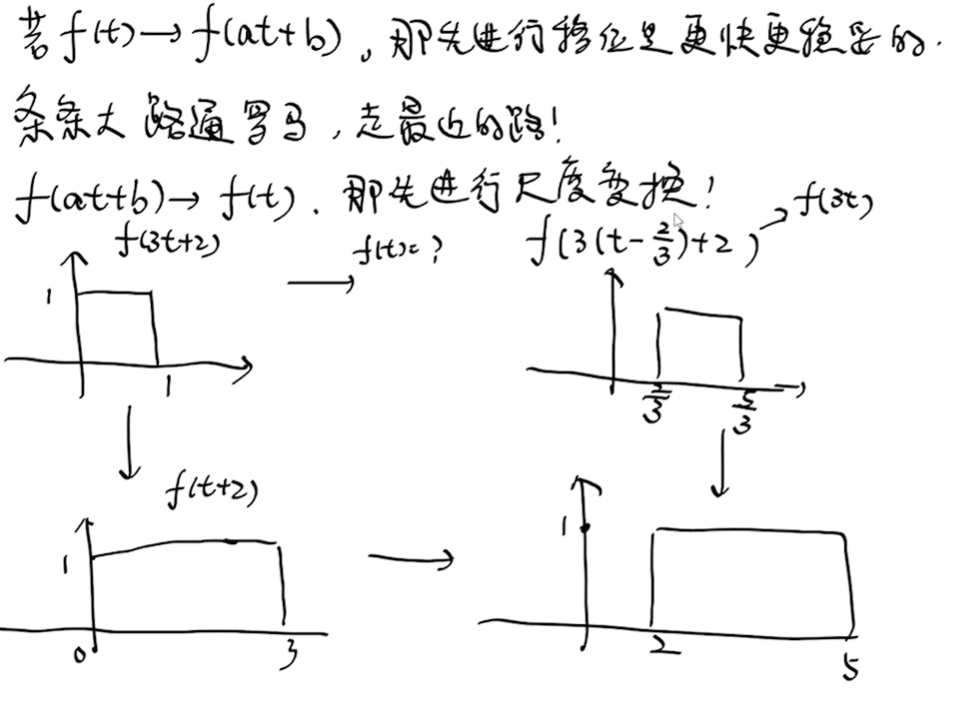 若 f(t) → f(at+b), 那先进行移位是更快更稳妥的.
条条大路通罗马, 走最近的路!
f(at+b) → f(t). 那先进行尺度变换!
f(3t+2) → f(t)=? f(3(t-2/3)+2) → f(3t)
1 1
2/3 5/3
f(t+2)
1 0 3
1 2 5